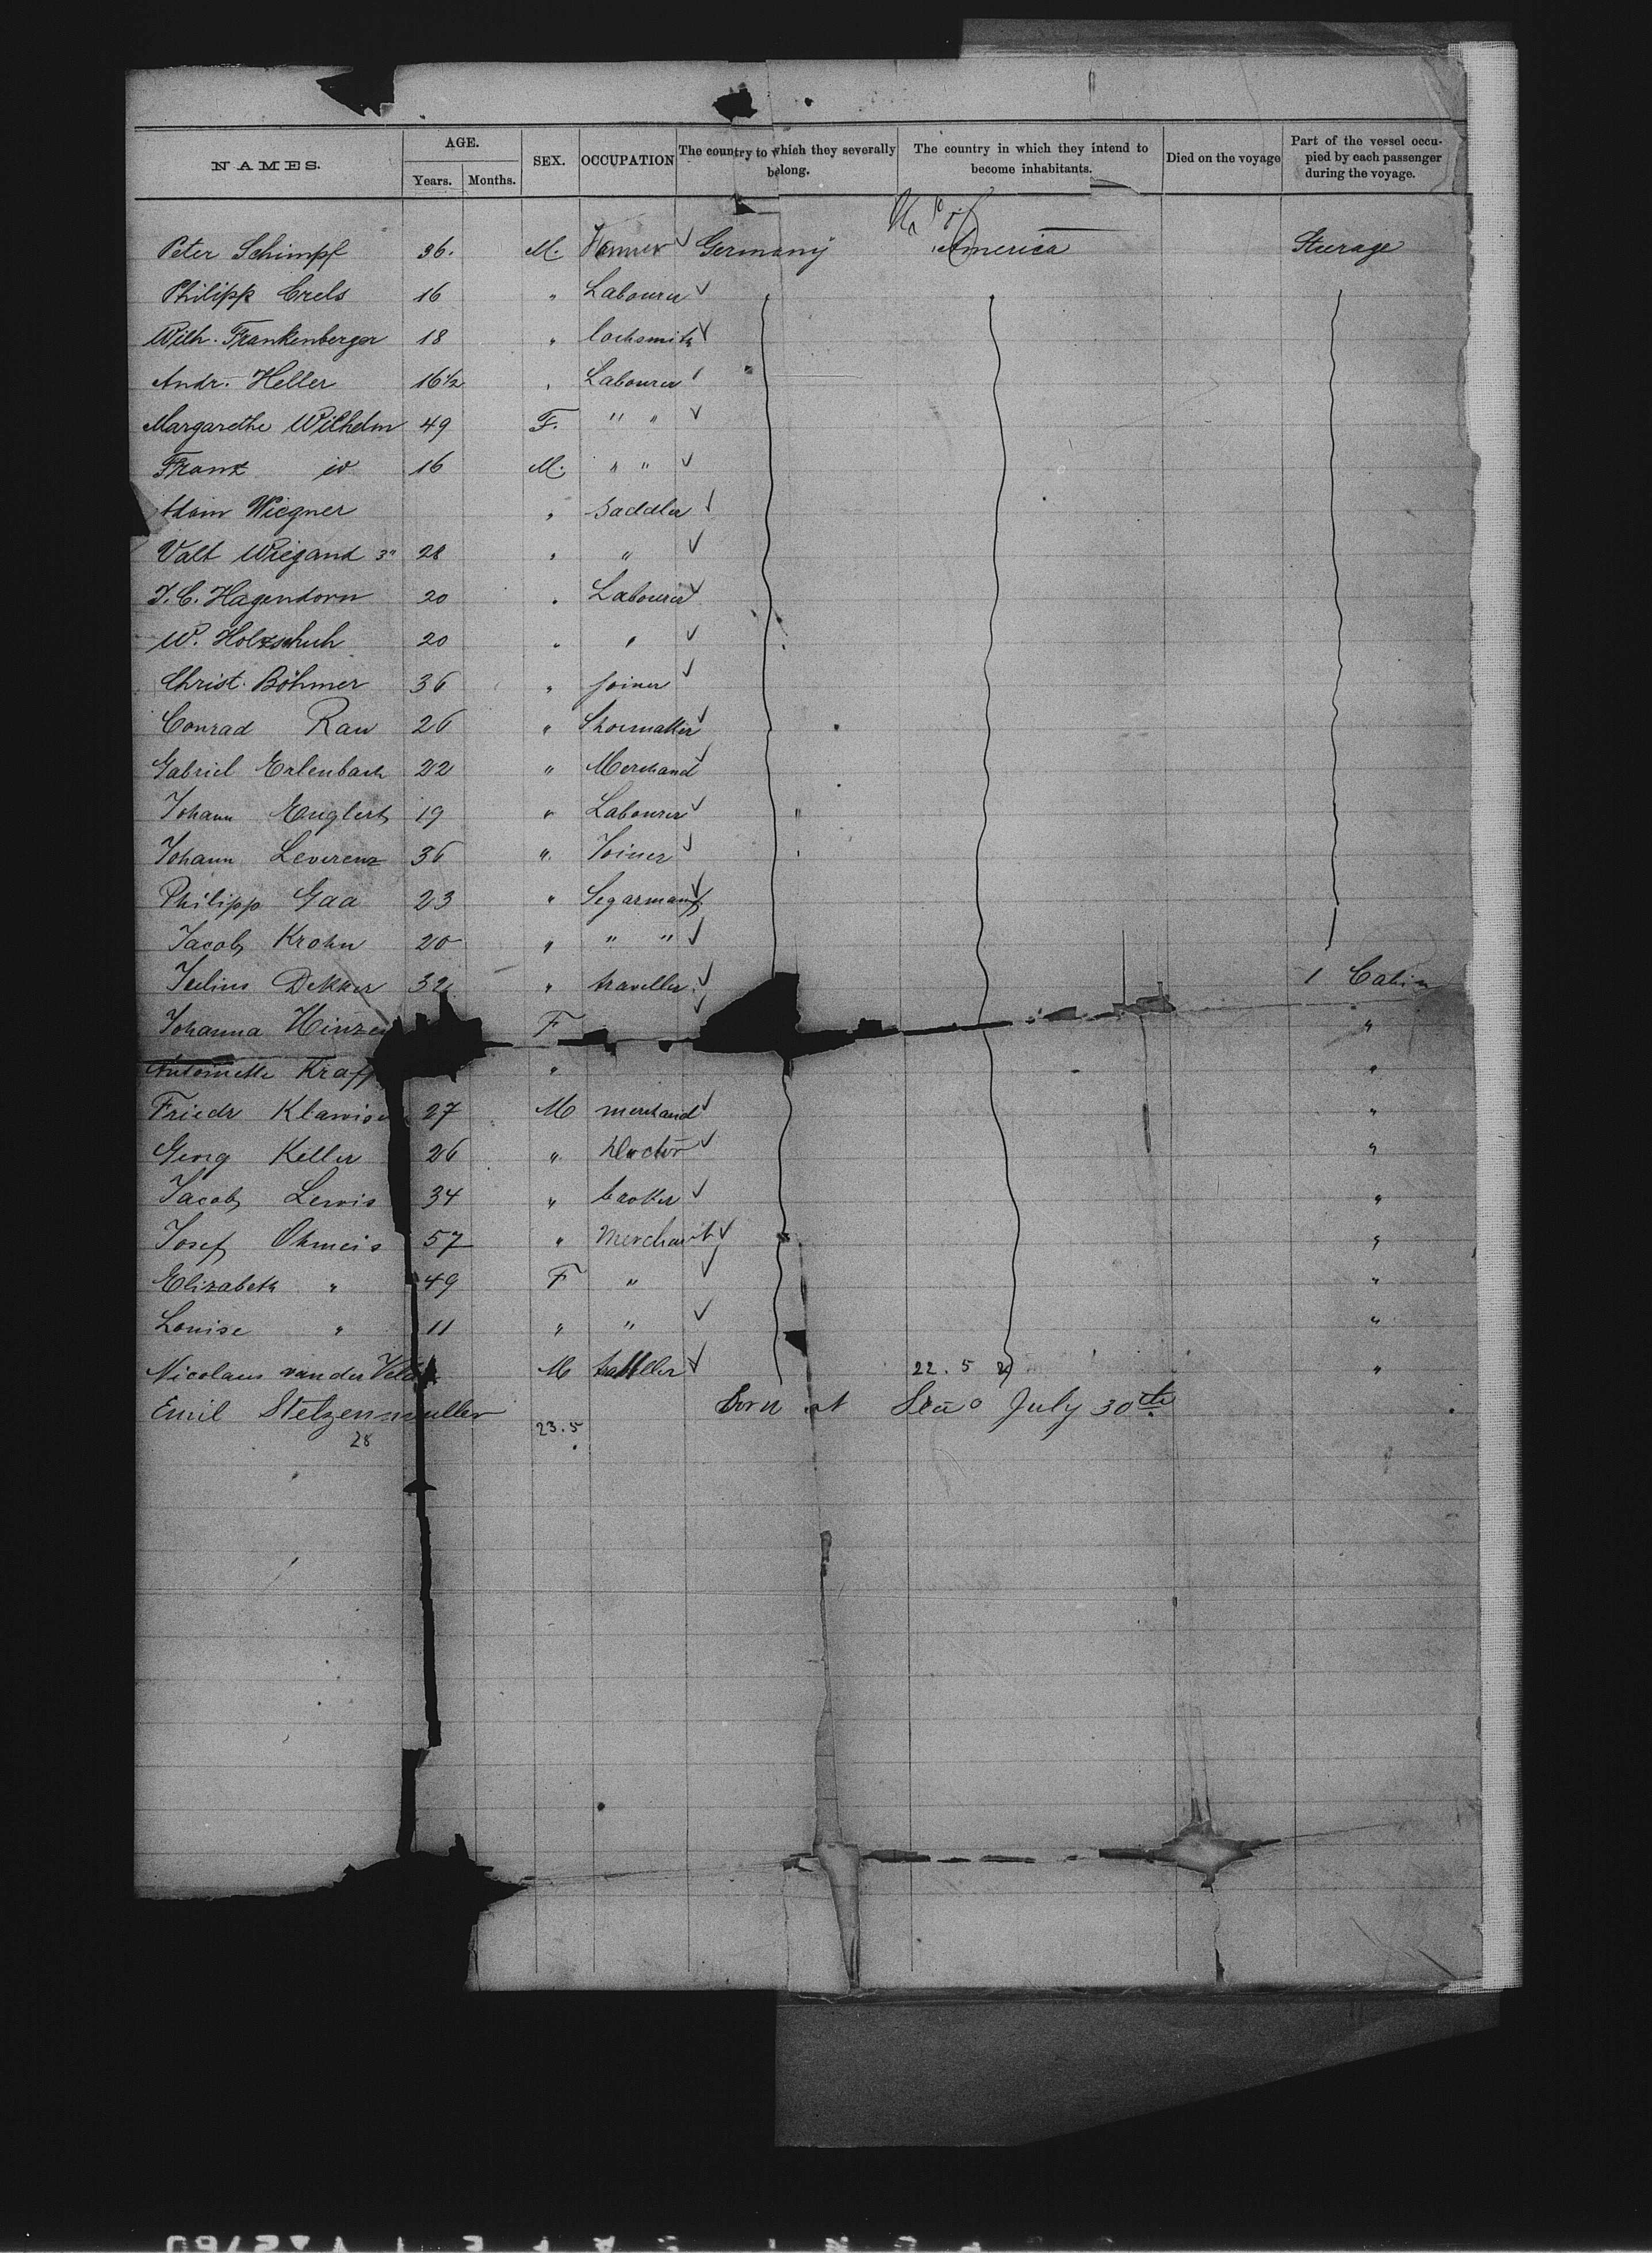 NAMES. AGE. Years. Months. SEX. OCCUPATION The country to which they severally belong. The country in which they intend to become inhabitants. Died on the voyage Part of the vessel occupied by each passenger during the voyage.
Peter Schimpf 36. M. Germany America Steerage
Philipp Crels 16 " Labourer
Wilh. Frankenberger 18 " locksmith
Andr. Heller 16½ " Labourer
Margarethe Wilhelm 49 F. " "
Franz id 16 M. " "
Adam Wiegner " Saddler
Valt Wiegand 28 " "
J. C. Hagendorn 20 " Labourer
W. Holzschuh 20 " "
Christ. Böhmer 36 " joiner
Conrad Rau 26 " Shoemaker
Gabriel Erlenbach 22 " Merchand
Johann Englert 19 " Labourer
Johann Leverenz 36 " Joiner
Philipp Gaa 23 " Segarmanf
Jacob Krohn 20 " " "
Julius Dekker 32 " traveller 1 Cabin
Johanna Hinzen F "
Antoinette Kraff " "
Friedr 27 M merchand "
Georg Keller 26 " Doctor "
Jacob Lewis 34 " broker "
Josef Ohmeis 57 " Merchant "
Elizabeth " 49 F " "
Louise " 11 " " "
Nicolaus van der Veld M 22.5 "
Emil Stelzenmuller Born at Sea July 30th
28 23.5